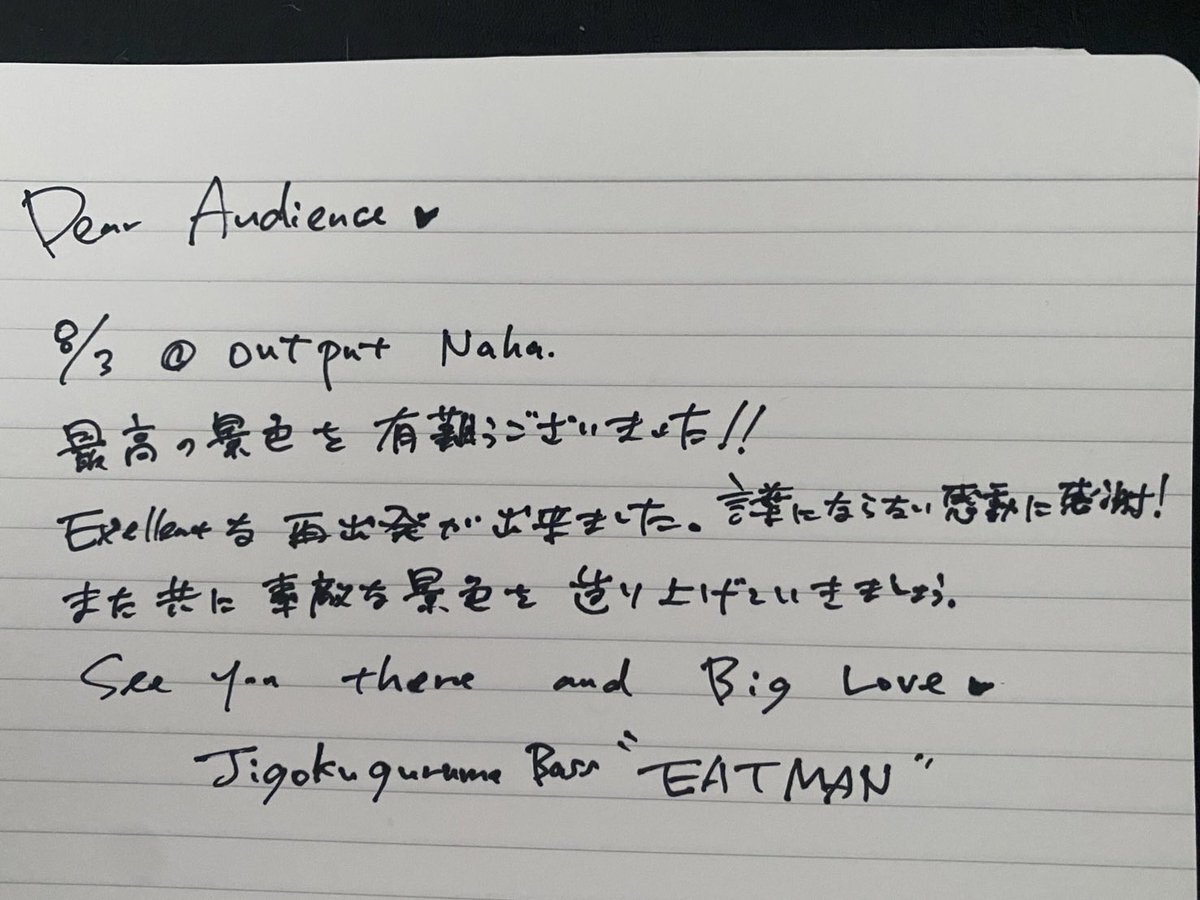 Dear Audience ♥
8/3 @ output Naha.
最高の景色を有難うございました!!
Exellentな再出発が出来ました。言葉にならない感動に感謝!
また共に素敵な景色を造り上げていきましょう.
See you there and Big Love ♥
Jigokuguruma Bass "EATMAN"